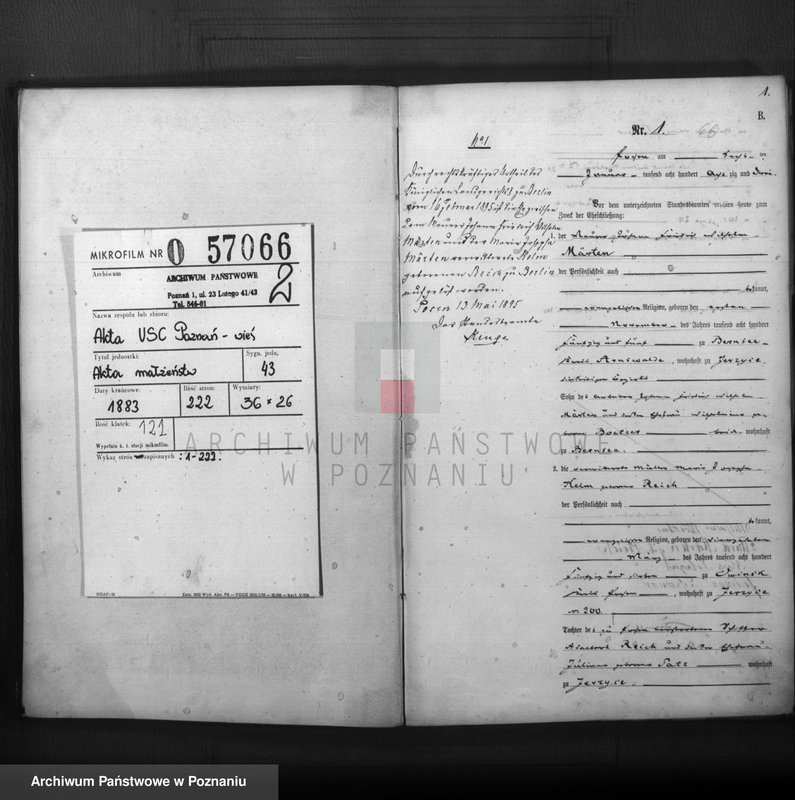 MIKROFILM NR 0 57066
Archiwum
ARCHIWUM PAŃSTWOWE
Poznań 1, ul. 23 Lutego 41/43
Tel. 546-01
2
Nazwa zespołu lub zbioru:
Akta USC Poznań - wieś
Tytuł jednostki:
Akta małżeństw
Sygn. jedn.
43
Daty krańcowe:
1883
Ilość stron:
222
Wymiary:
36 × 26
Ilość klatek:
121
Wypełnia k. t. stacji mikrofilm.
Wykaz stron zapisanych : 1-222.
No 1
Durch rechtskräftiges Urtheil des
Königlichen Landgerichts I zu Berlin
vom 16 Februar 1895 ist die Ehe zwischen
dem Maurer Johann Friedrich Wilhelm
Märten und der Marie Josepha
Märten verwittwete Helm
geborenen Reich zu Berlin
aufgelöst worden.
Posen 13 Mai 1895
Der Standesbeamte
1.
B.
Nr. 1.
Posen am sechs ten
Januar tausend acht hundert acht zig und drei.
Vor dem unterzeichneten Standesbeamten erschienen heute zum
Zweck der Eheschließung:
1. der Maurer Johann Friedrich Wilhelm
Märten
der Persönlichkeit nach
bekannt,
evangelischer Religion, geboren den ersten
November des Jahres tausend acht hundert
fünfzig und fünf zu Bernsee
Kreis Arnswalde, wohnhaft zu Jerzyce
Sohn des Arbeiters Johann Friedrich Wilhelm
Märten und dessen Ehefrau Wilhelmine ge-
borene wohnhaft
zu Bernsee.
2. die verwittwete Müller Marie Josepha
Helm geborene Reich
der Persönlichkeit nach
bekannt,
evangelischer Religion, geboren den
März des Jahres tausend acht hundert
fünfzig und sieben zu
Kreis Posen, wohnhaft zu Jerzyce
n 200
Tochter des zu Posen verstorbenen
Adalbert Reich und dessen Ehefrau
Juliane geborene Patz wohnhaft
zu Jerzyce.
ARCHIWUM PAŃSTWOWE
W POZNANIU
Archiwum Państwowe w Poznaniu